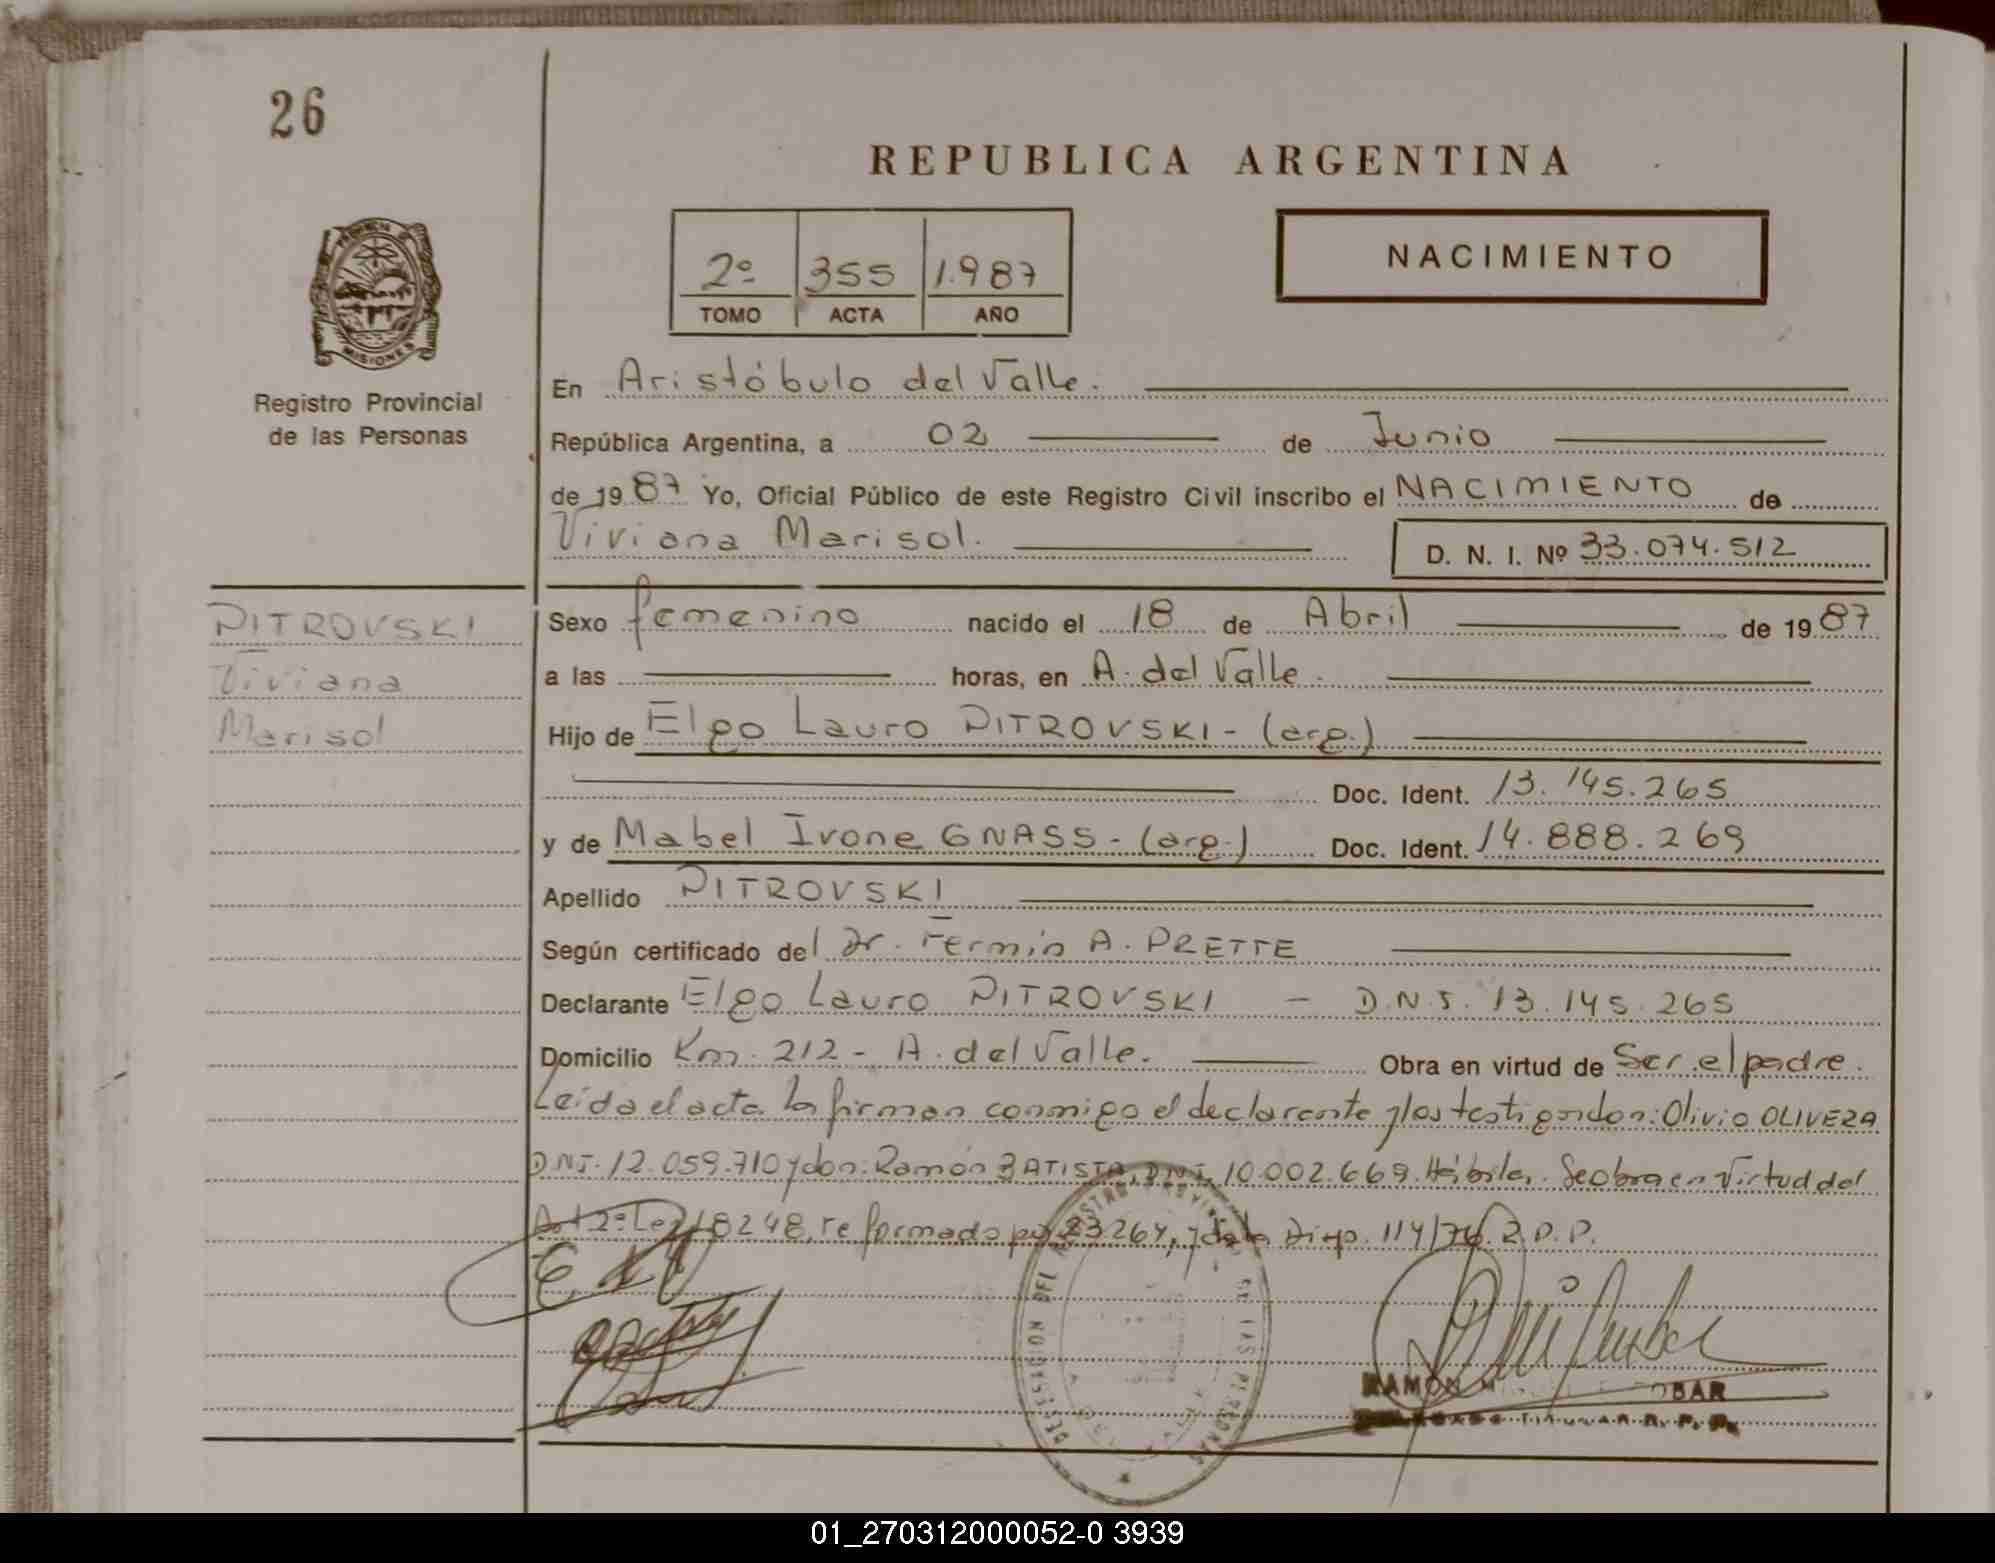 26
REPUBLICA ARGENTINA
PROVINCIA DE
MISIONES
Registro Provincial
de las Personas
2º 355 1.987
TOMO ACTA AÑO
NACIMIENTO
En Aristóbulo del Valle.
República Argentina, a 02 de Junio
de 1987 Yo, Oficial Público de este Registro Civil inscribo el NACIMIENTO de
Viviana Marisol.
D. N. I. Nº 33.074.512
PITROVSKI
Viviana
Marisol
Sexo femenino nacido el 18 de Abril de 1987
a las horas, en A. del Valle.
Hijo de Elgo Lauro PITROVSKI - (arg.)
Doc. Ident. 13.145.265
y de Mabel Ivone GNASS - (arg.) Doc. Ident. 14.888.269
Apellido PITROVSKI
Según certificado del Dr. Fermín A. PRETTE
Declarante Elgo Lauro PITROVSKI - D.N.I. 13.145.265
Domicilio Km. 212 - A. del Valle. Obra en virtud de Ser el padre.
Leída el acta la firman conmigo el declarante y los testigos don: Olivio OLIVERA
D.N.I. 12.059.710 y don: Ramón BATISTA, D.N.I. 10.002.669. Hábiles. Se obra en Virtud del
Art 2º Ley 18248, reformado por 23264, y de la Disp. 114/76. R.P.P.
RAMON M. OBAR
TITULAR R. P. P.
01_270312000052-0 3939